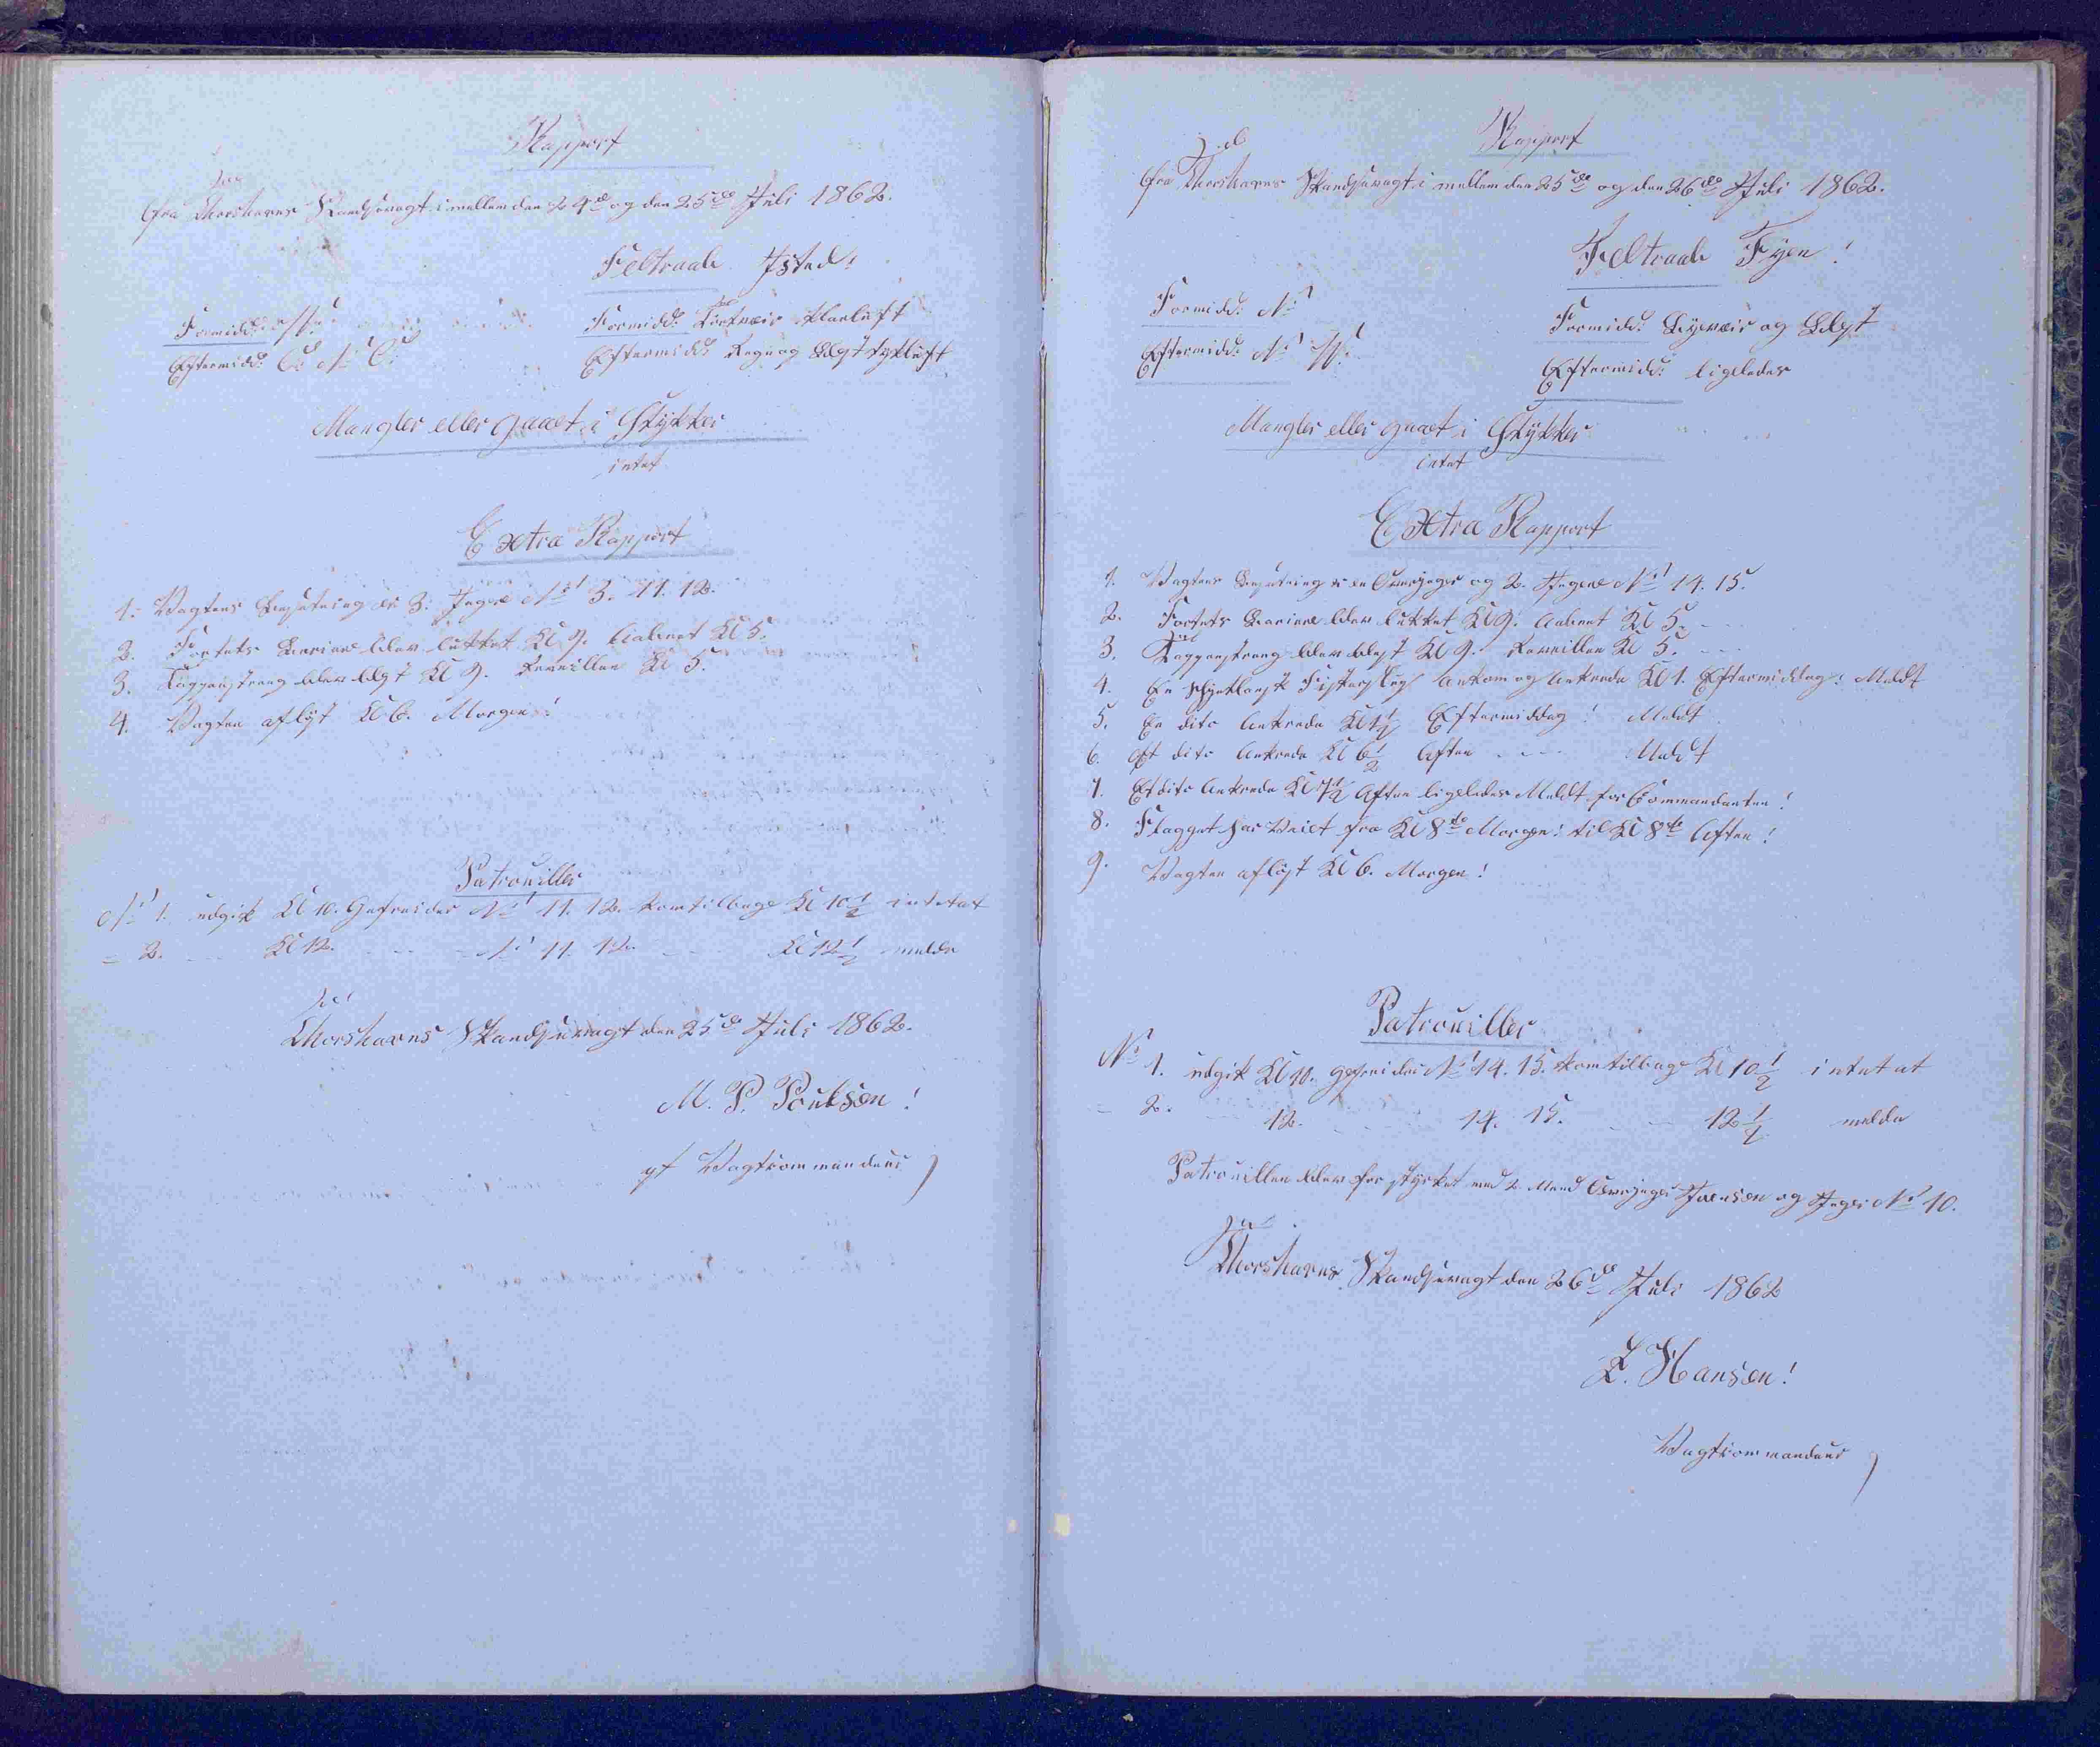 Rapport
fra Thorshavns Skandsevagt imellem den 24de og den 25de Juli 1862.
Feltraab Isted!
Formidd:
Formidd: Tørtveir Klarluft
Eftermidd:
Eftermidd: Regn og Blæst tykluft
Mangler eller gaaet i Stykker
intet
Extra Rapport
1. Vagtens Besætning er 3: Jægere No 3. 11. 12.
2. Fortets Barriere blev lukket Kl 9. aabnet Kl 5.
3. Tappenstreg blev blæst Kl 9. Reveillen Kl 5.
4. Vagten afløst Kl 6. Morgen!
Patrouiller
No 1. udgik Kl 10. Gefreider No 11. 12. kom tilbage Kl 10½ intet at
" 2. Kl 12. No 11. 12. Kl 12½ melde
Thorshavns Skandsevagt den 25de Juli 1862.
M. P. Poulsen!
Vagtcommandeur
Rapport
fra Thorshavns Skandsevagt imellem den 25de og den 26de Juli 1862.
Feltraab Fyen!
Formidd: N
Formidd: Byeveir og Blæst
Eftermidd: N
Eftermidd: ligeledes
Mangler eller gaaet i Stykker
intet
Extra Rapport
1. Vagtens Besætning er en Overjæger og 2. Jægere No 14. 15.
2. Fortets Barriere blev lukket Kl 9. aabnet Kl 5.
3. Tappenstreg blev blæst Kl 9. Reveillen Kl 5.
4. En Skjetlansk Fiskerslup ankom og ankrede Kl 1. Eftermiddag: Meldt
5. En dito ankrede Kl 1½ Eftermiddag! Meldt
6. Et dito ankrede Kl 6½ Aften Meldt
7. Et dito ankrede Kl 7½ Aften ligeledes Meldt for Commandanten!
8. Flagget har Veiet fra Kl 8te Morgen: til Kl 8te Aften!
9. Vagten afløst Kl 6. Morgen!
Patrouiller
No 1. udgik Kl 10. gefreider No 14. 15. kom tilbage Kl 10½ intet at
" 2. 12. 14. 15. 12½ melde
Patrouillen blev forstyrket med 2 Mand Overjæger Joensen og Jæger No 10.
Thorshavns Skandsevagt den 26de Juli 1862
Z. Hansen!
Vagtcommandeur